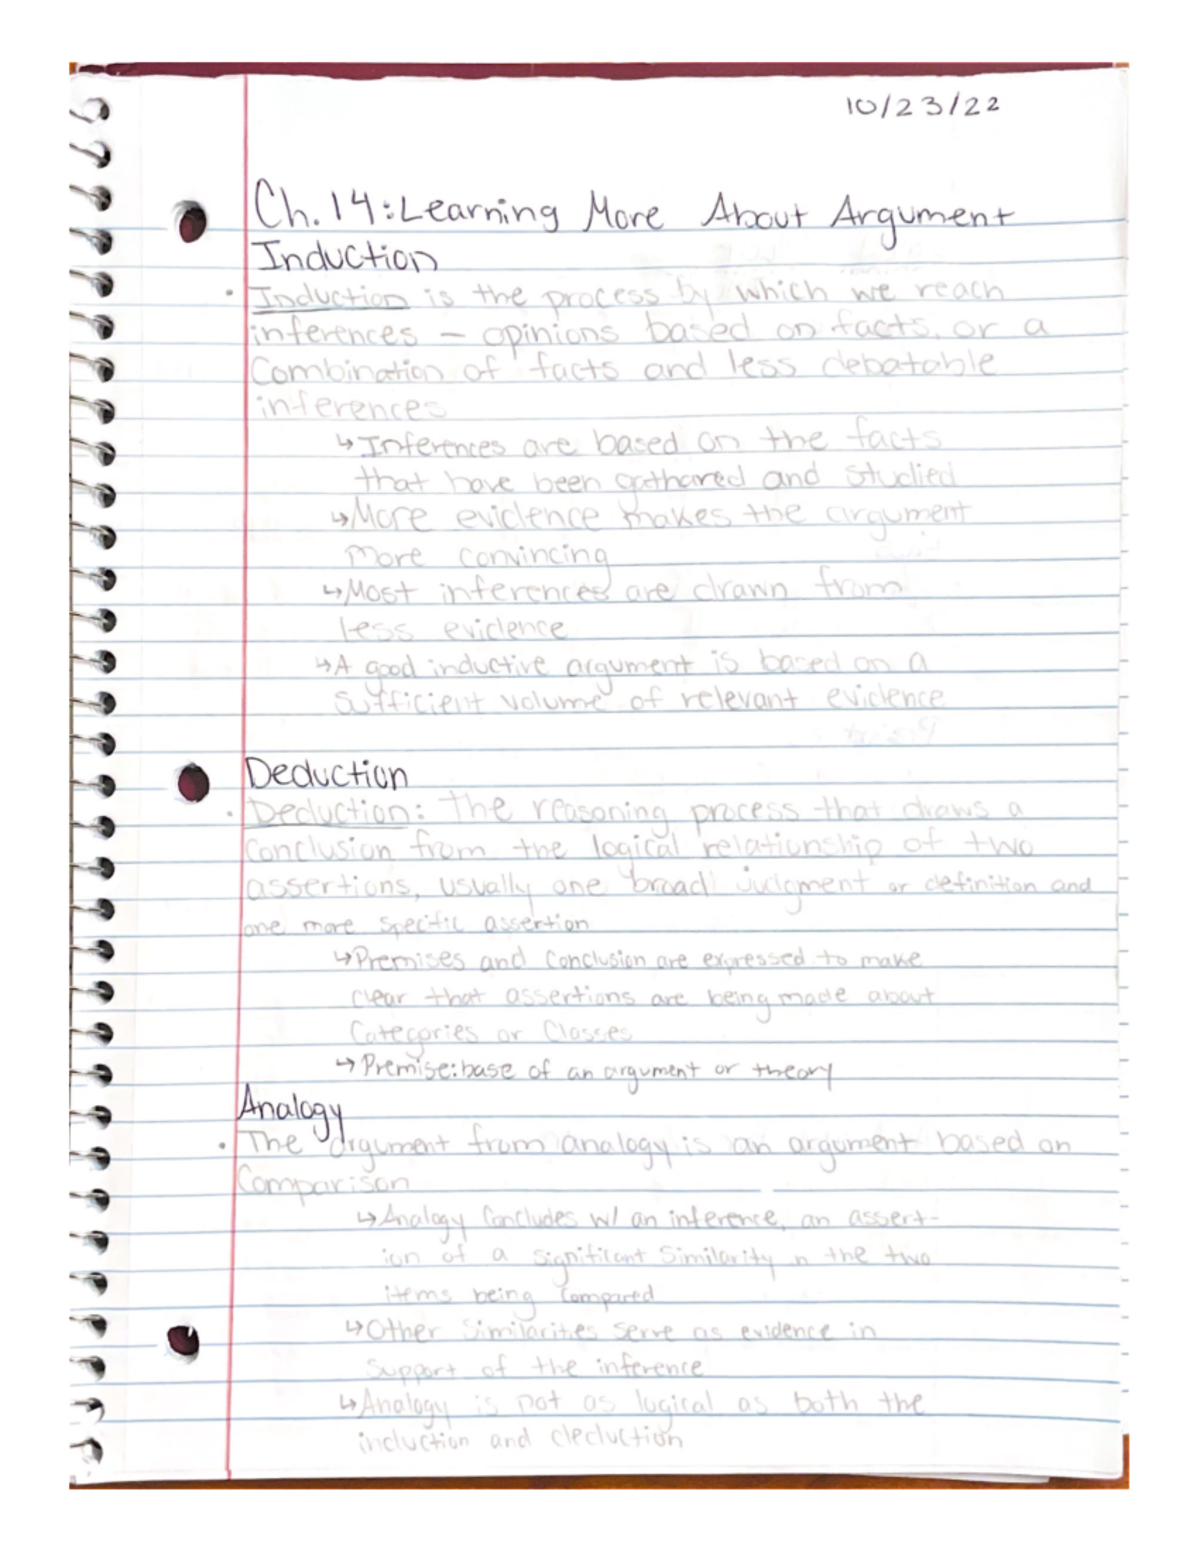 10/23/22
Ch. 14: Learning More About Argument
Induction
• Induction is the process by which we reach
inferences – opinions based on facts, or a
Combination of facts and less debatable
inferences
↳ Inferences are based on the facts
that have been gathared and studied
↳ More evidence makes the argument
more convincing
↳ Most inferences are drawn from
less evidence
↳ A good inductive argument is based on a
sufficient volume of relevant evidence
Deduction
• Deduction: the reasoning process that draws a
Conclusion from the logical relationship of two
assertions, usually one broad judgment or definition and
one more specific assertion
↳ Premises and Conclusion are expressed to make
clear that assertions are being made about
Categories or Classes
↳ Premise: base of an argument or theory
Analogy
• The argument from analogy is an argument based on
Comparison
↳ Analogy Concludes w/ an inference, an assert-
ion of a significant Similarity n the two
items being Compared
↳ Other Similarities Serve as evidence in
Support of the inference
↳ Analogy is not as logical as both the
induction and deduction